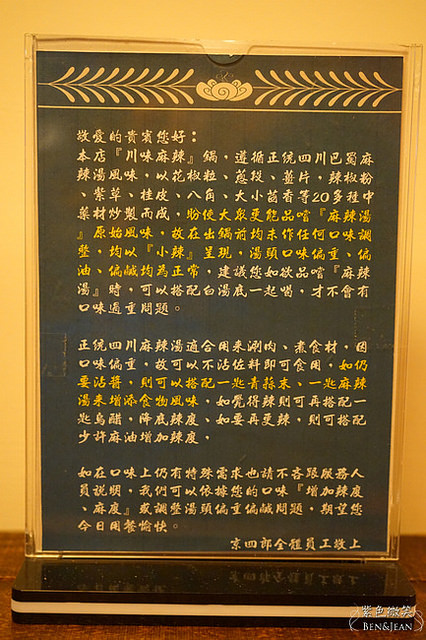 敬愛的貴賓您好：
本店『川味麻辣』鍋，遵循正統四川巴蜀麻
辣湯風味，以花椒粒、蔥段、薑片，辣椒粉
、紫草、桂皮、八角、大小茴香等20多種中
藥材炒製而成，盼使大眾更能品嚐『麻辣湯
』原始風味，故在出鍋前均未作任何口味調
整，均以『小辣』呈現，湯頭口味偏重、偏
油、偏鹹均為正常，建議您如欲品嚐『麻辣
湯』時，可以搭配白湯底一起喝，才不會有
口味過重問題。
正統四川麻辣湯適合用來涮肉、煮食材，因
口味偏重，故可以不沾佐料即可食用，如仍
要沾醬，則可以搭配一匙青蒜末、一匙麻辣
湯來增添食物風味，如覺得辣則可再搭配一
匙烏醋，降底辣度、如要再更辣，則可搭配
少許麻油增加辣度，
如在口味上仍有特殊需求也請不吝跟服務人
員說明，我們可以依據您的口味『增加辣度
、麻度』或調整湯頭偏重偏鹹問題，期望您
今日用餐愉快。
京四郎全體員工敬上
紫色微笑
BEN&JEAN